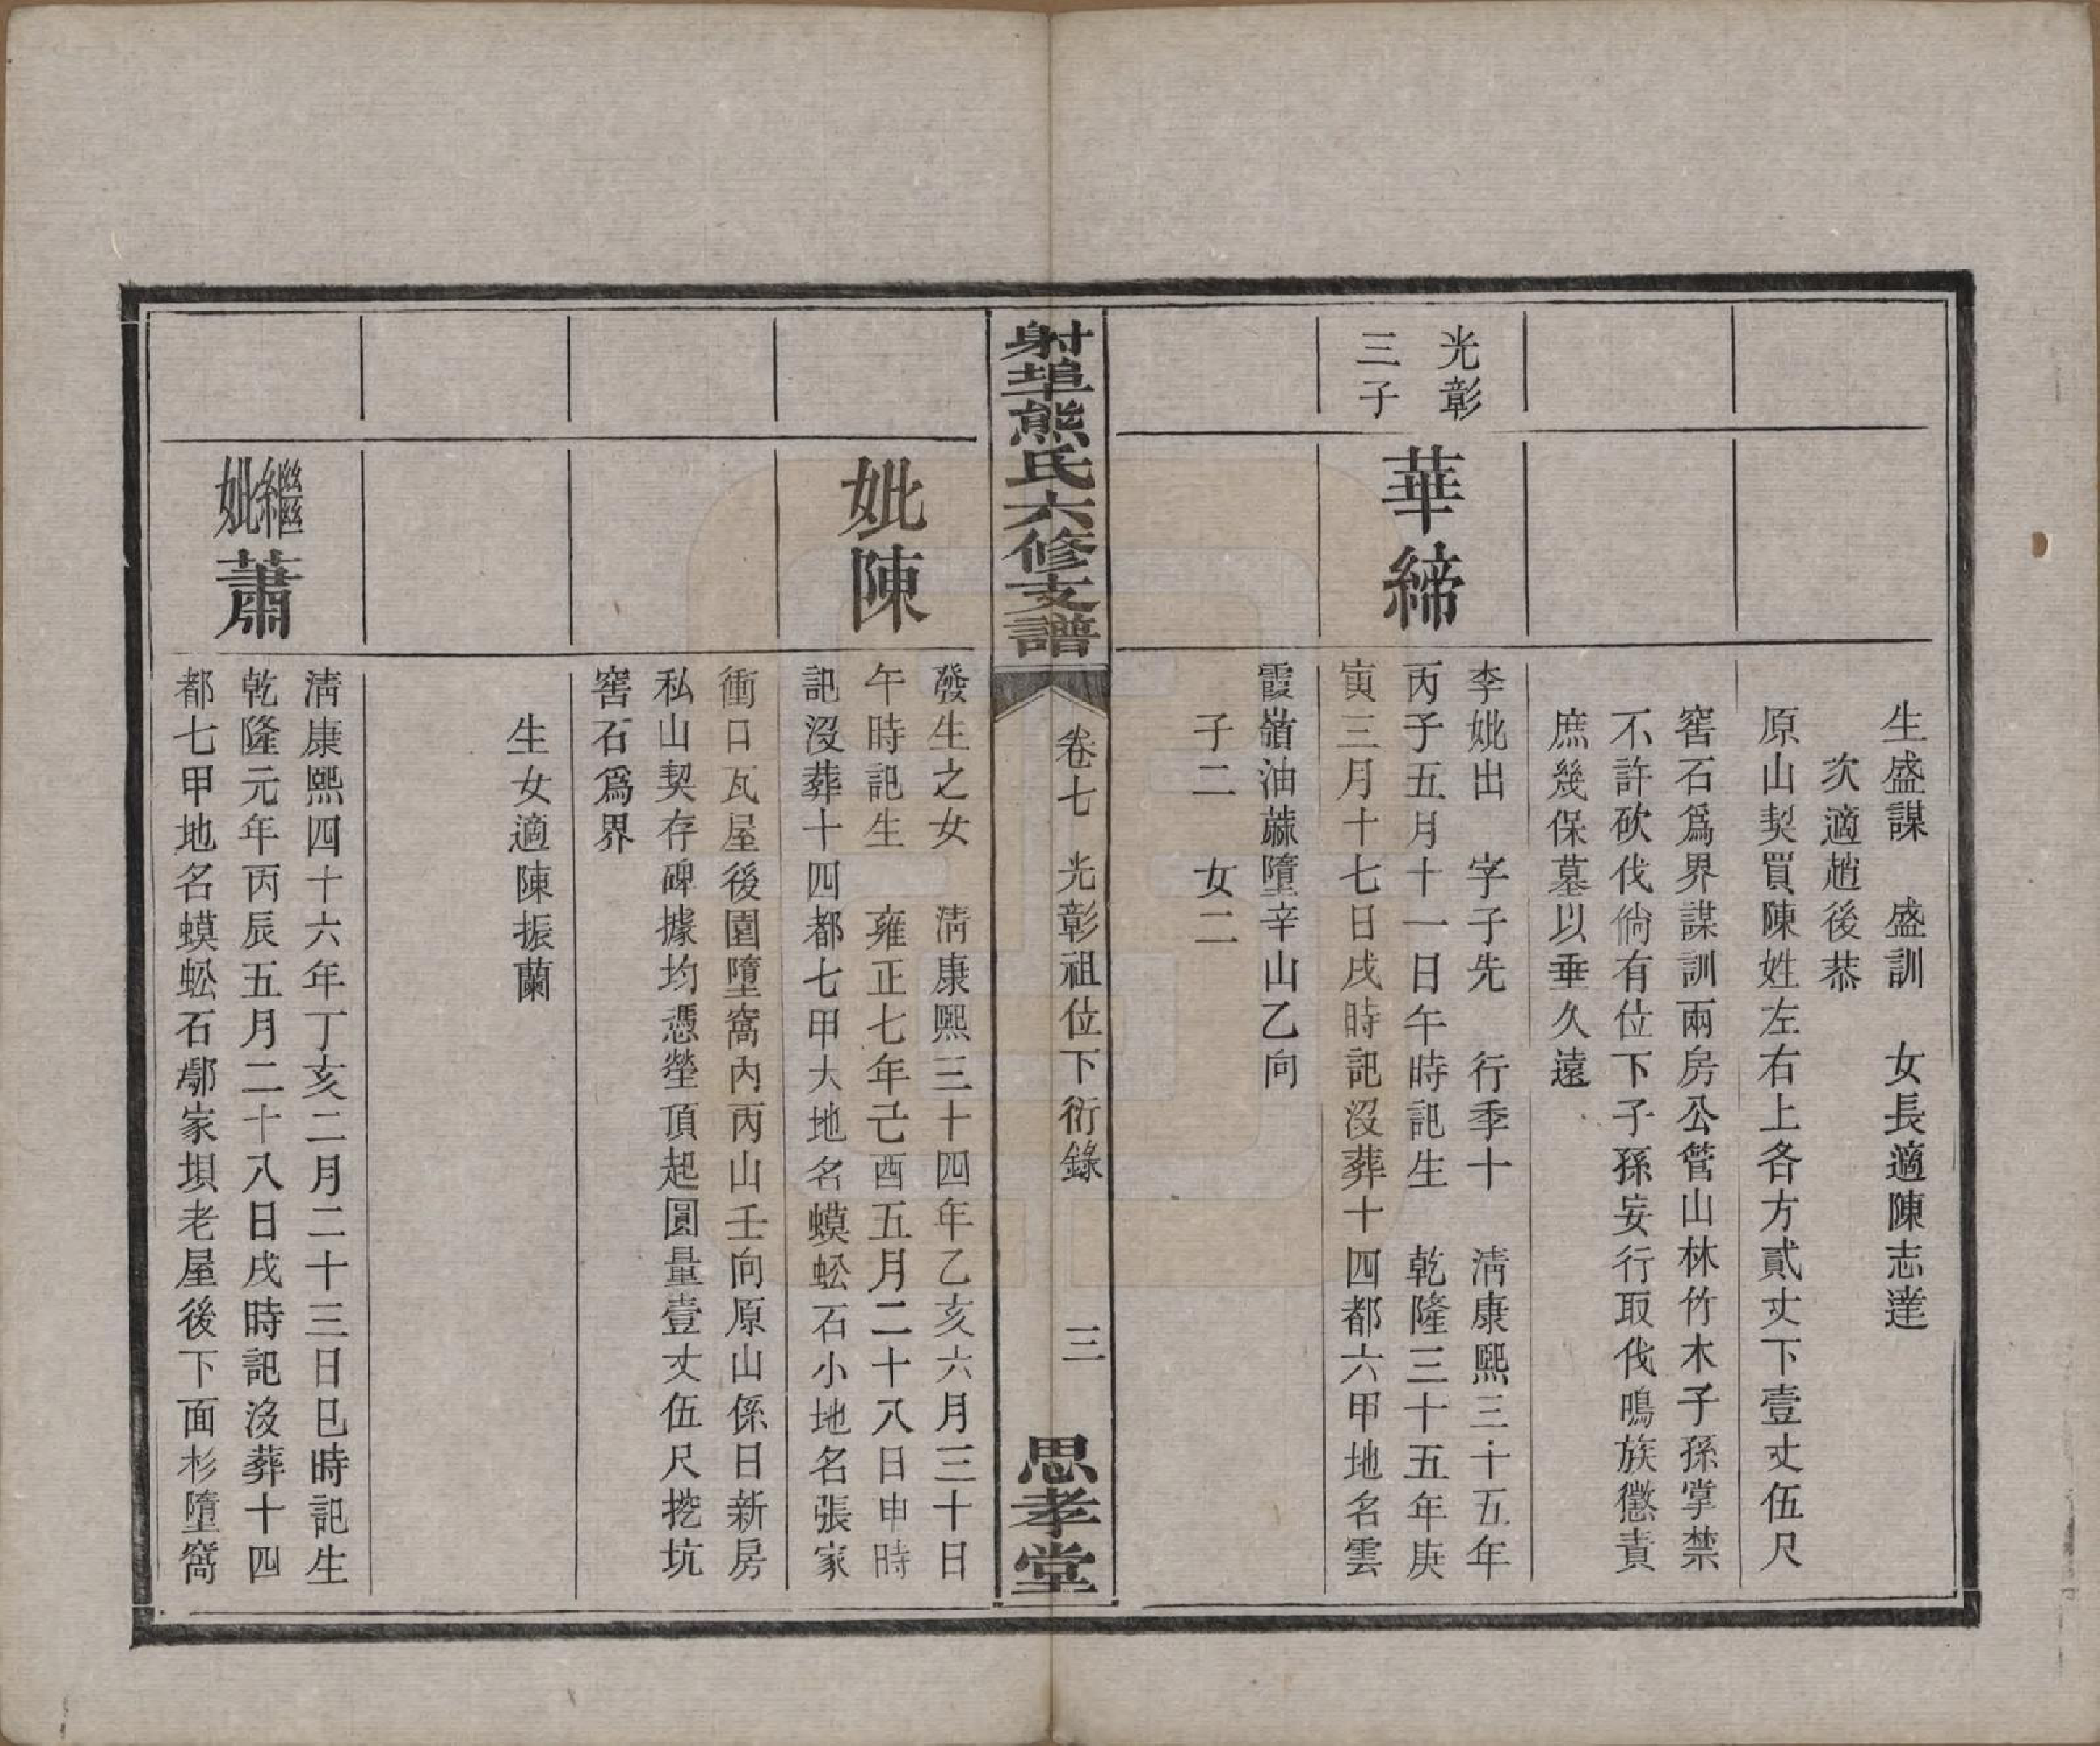 生盛謀　盛訓　女長適陳志達
次適趙後恭
原山契買陳姓左右上各方貳丈下壹丈伍尺
窖石爲界謀訓兩房公管山林竹木子孫掌禁
不許砍伐倘有位下子孫妄行取伐鳴族懲責
庶幾保墓以垂久遠
光彰
三子
華締
李妣出　字子先　行季十　淸康熙三十五年
丙子五月十一日午時記生　乾隆三十五年庚
寅三月十七日戌時記沒葬十四都六甲地名雲
霞嶺油蔴墮辛山乙向
子二　女二
射埠熊氏六修支譜
卷七　光彰祖位下衍錄
三
思孝堂
妣陳
發生之女　淸康熙三十四年乙亥六月三十日
午時記生　雍正七年己酉五月二十八日申時
記沒葬十四都七甲大地名蟆蚣石小地名張家
衝口瓦屋後園墮窩內丙山壬向原山係日新房
私山契存碑據均憑塋頂起圓量壹丈伍尺挖坑
窖石爲界
生女適陳振蘭
繼妣蕭
淸康熙四十六年丁亥二月二十三日巳時記生
乾隆元年丙辰五月二十八日戌時記沒葬十四
都七甲地名蟆蚣石鄢家垻老屋後下面杉墮窩